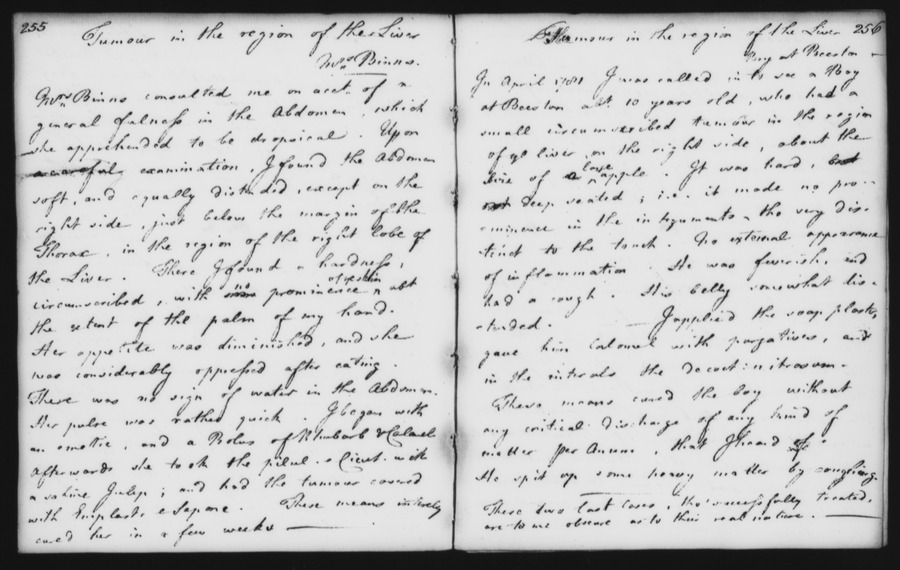 255
Tumour in the region of the Liver
Mrs Binns.
Mrs Binns consulted me on acct. of a
general fulness in the Abdomen, which
she apprehended to be dropsical. Upon
a careful examination, I found the Abdomen
soft, and equally distended, except on the
right side just below the margin of the
Thorax, in the region of the right lobe of
the Liver. There I found a hardness,
circumscribed, with no prominence of ye skin, abt
the extent of the palm of my hand.
Her appetite was diminished, and she
was considerably oppressed after eating.
There was no sign of water in the Abdomen.
Her pulse was rather quick. I began with
an emetic, and a Bolus of Rhubarb & Calomel
Afterwards she took the pilul. e Cicut. with
a saline Julep; and had the tumour covered
with Emplastr. e Sapone. These means intirely
cured her in a few weeks
256
Tumour in the region of the Liver
Boy at Beeston
In April 1781 I was called in to see a Boy
at Beeston aet. 10 years old, who had a
small circumscribed tumour in the region
of ye liver, on the right side, about the
size of a large apple. It was hard, but
not deep seated; i.e. it made no pro-
-minence in the integuments, tho very dis-
-tinct to the touch. No external appearance
of inflammation. He was feverish, and
had a cough. His belly somewhat dis-
-tended. I applied the soap plaster,
gave him Calomel with purgatives, and
in the intervals the decoct: nitrosum.
These means cured the boy without
any critical discharge of any kind of
matter per Anum, that I heard of.
He spit up some heavy matter by coughing.
These two last Cases, tho' successfully treated,
are to me obscure as to their real nature.